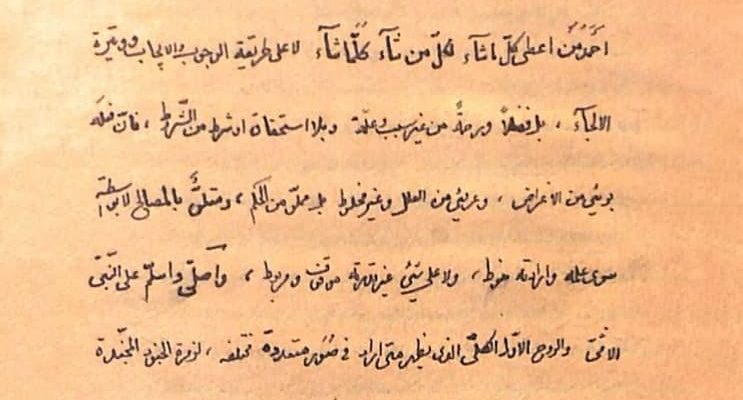 أحمد من أعطى كل ما شاء لكل من شاء كلما شاء لا على طريقة الوجوب والإيجاب ووتيرة
الالجآء ، بل فضلاً ورحمةً من غير سبب وعلّة وبلا استحقاق او شرط من الشّروط ، فانّ فعله
بريئ من الاغراض ، وعريئ من العلل وغير مخلوط بل مملوّ من الحكم ، ومتعلّق بالمصالح لا بواسطة
سوى علمه وارادته منوط ، ولا على شئ غير قدرته موقوف ومربوط ، وأصلّى وأسلّم على النّبىّ
الامّىّ والروح الأوّل الكلّىّ الذى يظهر متى اراد فى صُوَرٍ متعددة مختلفه ، لزمرة الجنود المجنّدة